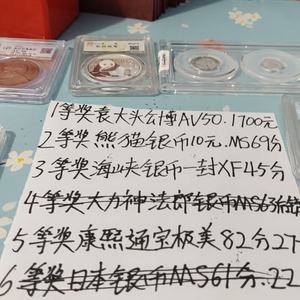 1等奖袁大头公博AV50.1700元
2等奖熊猫银币10元.MS69分
3等奖海峡银币一封XF45分
4等奖大力神法郎银币MS63
5等奖康熙通宝极美82分27
6等奖日本银币MS61分.22